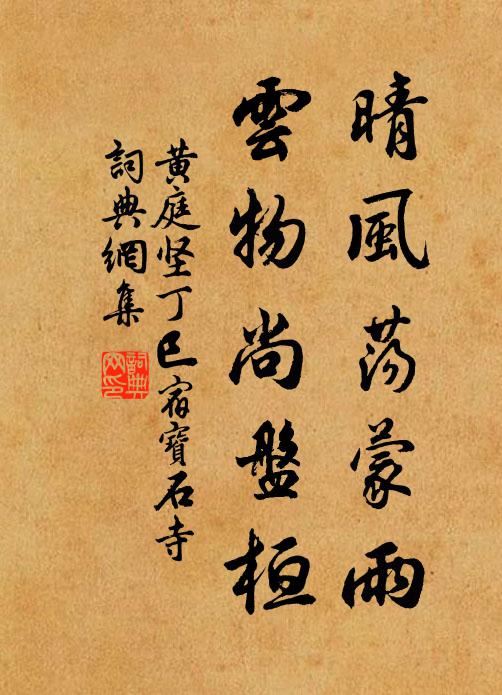 晴風蕩蒙雨
雲物尚盤桓
黃庭坚丁巳宿寶石寺
詞典網集
詞典网印